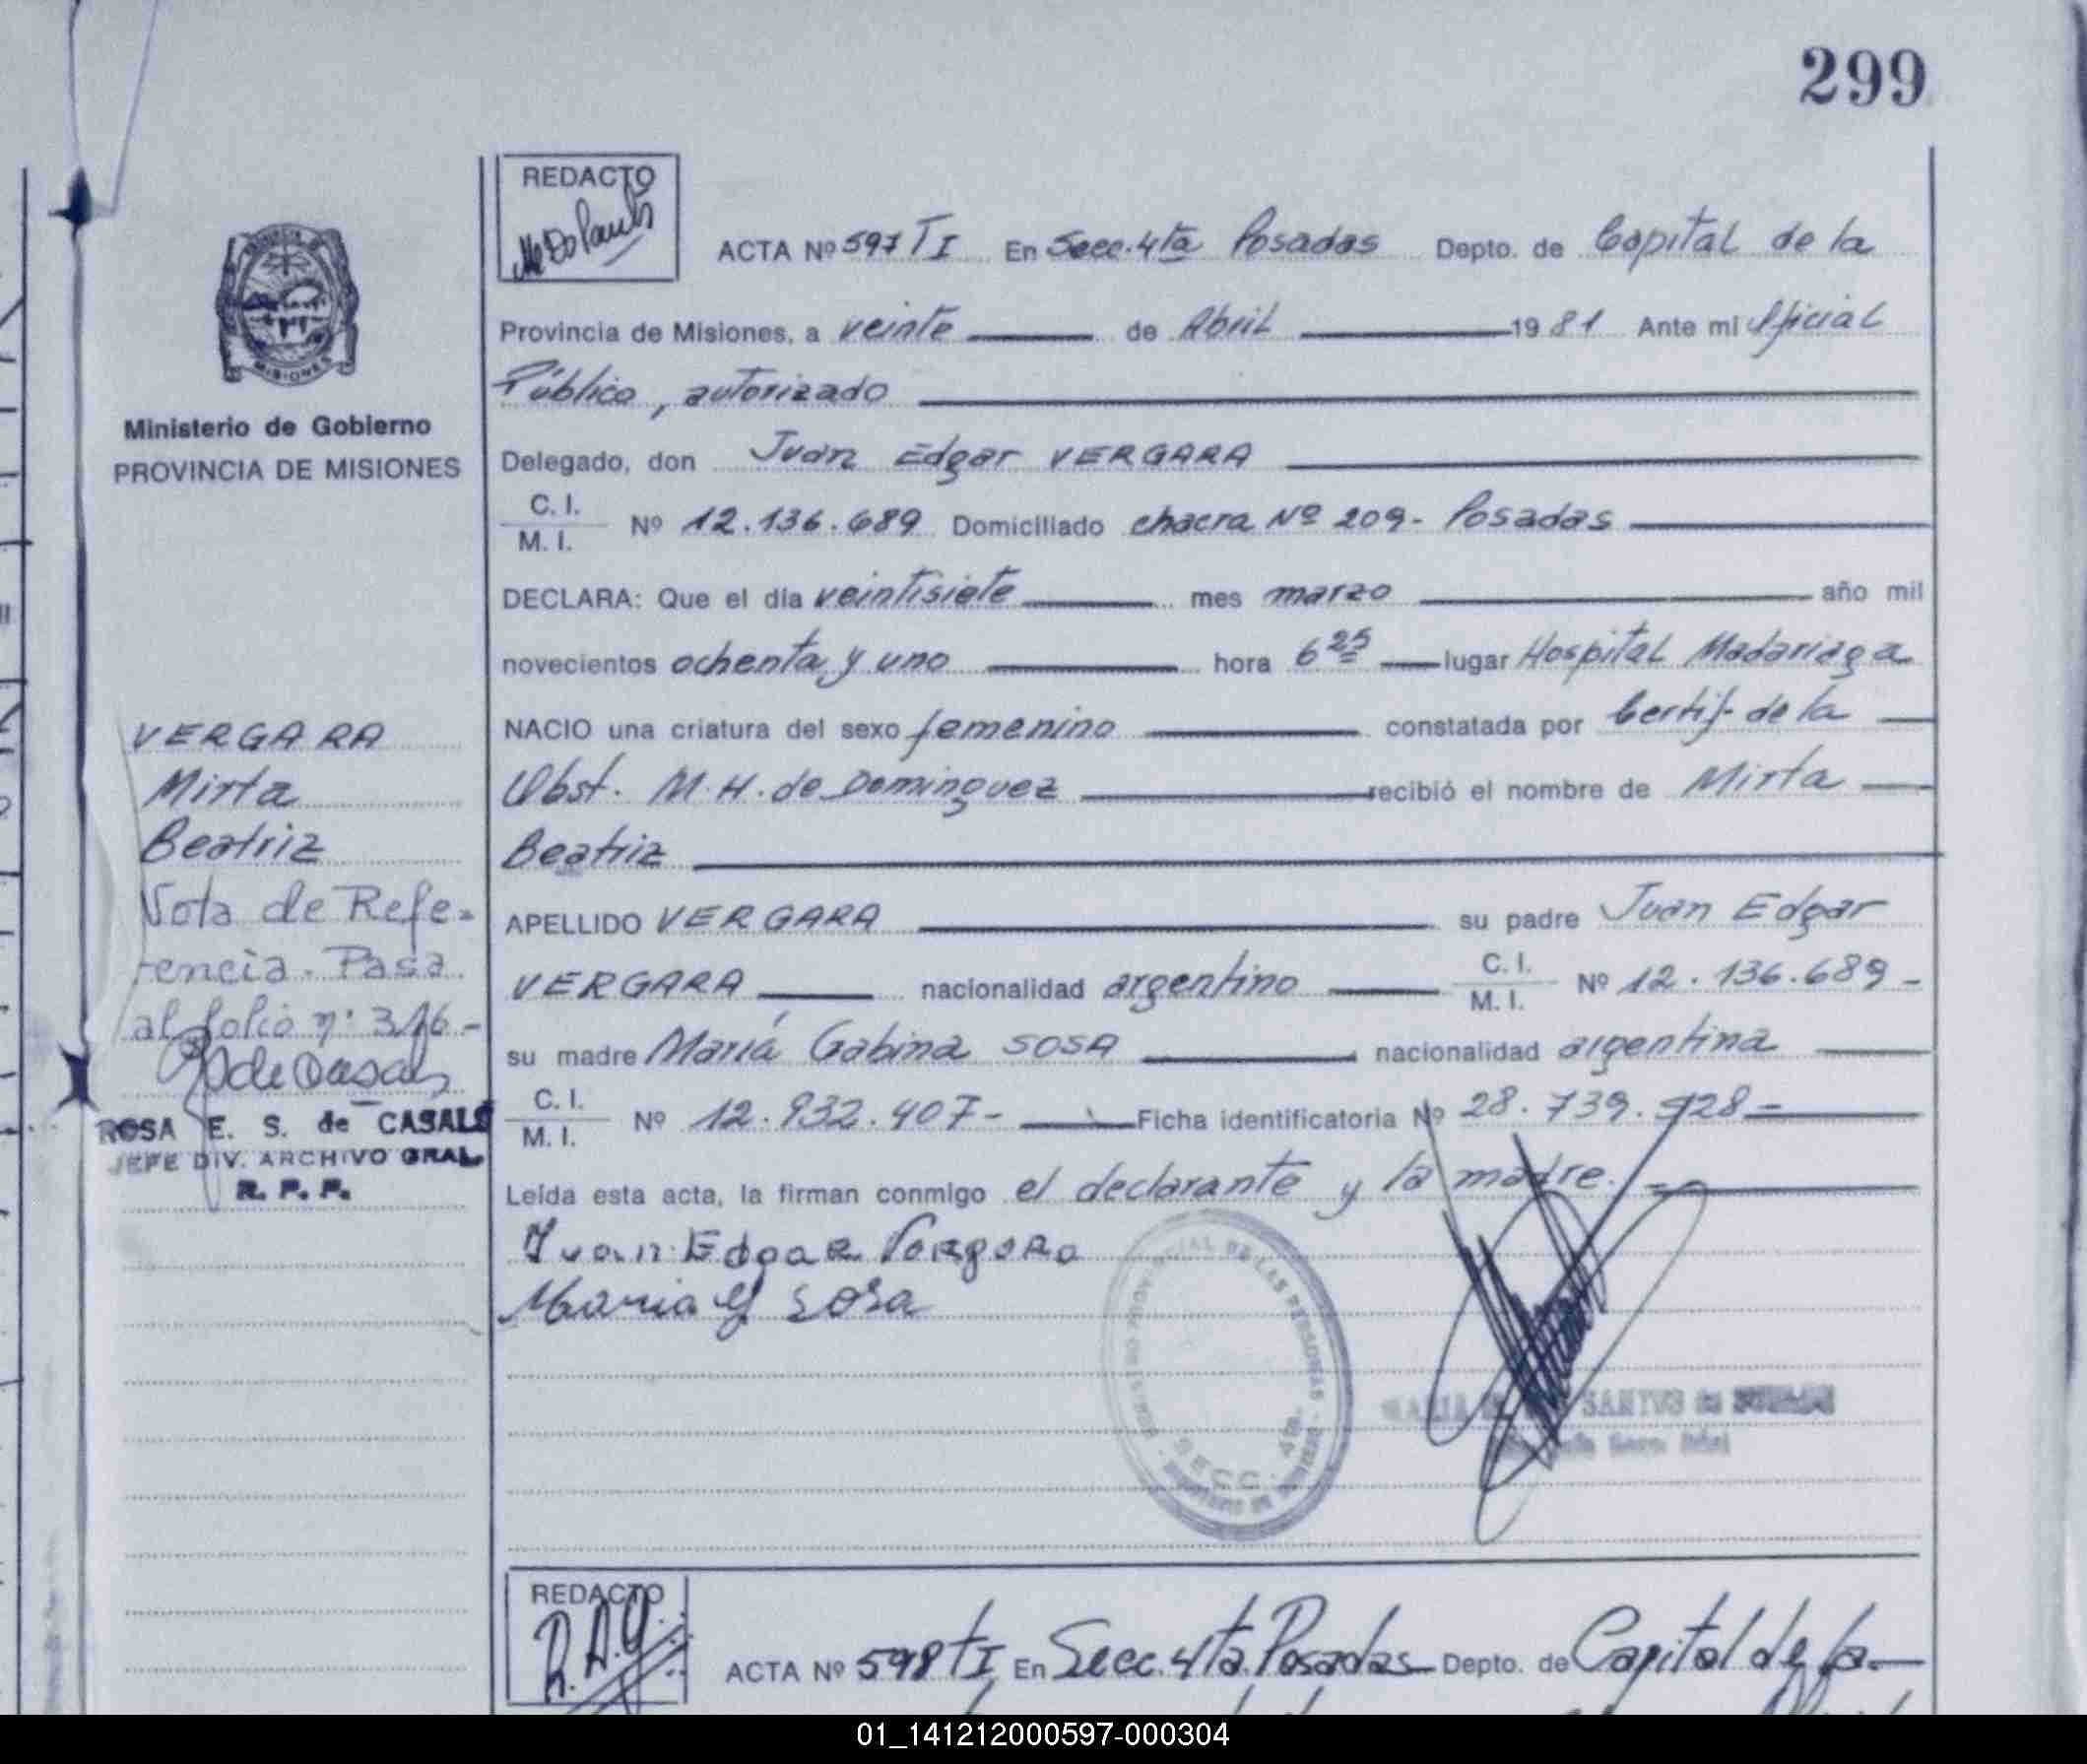 299
REDACTO
ACTA Nº 597 TI En Secc. 4ta Posadas Depto. de Capital de la
Provincia de Misiones, a veinte de Abril 1981 Ante mi Oficial
Público, autorizado
Delegado, don Juan Edgar VERGARA
C. I.
M. I. Nº 12.136.689 Domiciliado chacra Nº 209- Posadas
DECLARA: Que el día veintisiete mes marzo año mil
novecientos ochenta y uno hora 6 25 lugar Hospital Madariaga
NACIO una criatura del sexo femenino constatada por Certif. de la
Obst. M. H. de Dominguez recibió el nombre de Mirta
Beatriz
APELLIDO VERGARA su padre Juan Edgar
VERGARA nacionalidad argentino C. I. M. I. Nº 12.136.689-
su madre María Gabina SOSA nacionalidad argentina
C. I.
M. I. Nº 12.932.407- Ficha identificatoria Nº 28.739.928-
Leída esta acta, la firman conmigo el declarante y la madre.-
Juan Edgar Vergara
Maria G Sosa
SECC. 4ta.
MISIONES
Ministerio de Gobierno
PROVINCIA DE MISIONES
VERGARA
Mirta
Beatriz
Nota de Refe-
rencia. Pasa
al folio nº 316-
ROSA E. S. de CASALS
JEFE DIV. ARCHIVO GRAL
R. P. P.
REDACTO
ACTA Nº 598 tI En Secc. 4ta. Posadas Depto. de Capital de la
01_141212000597-000304